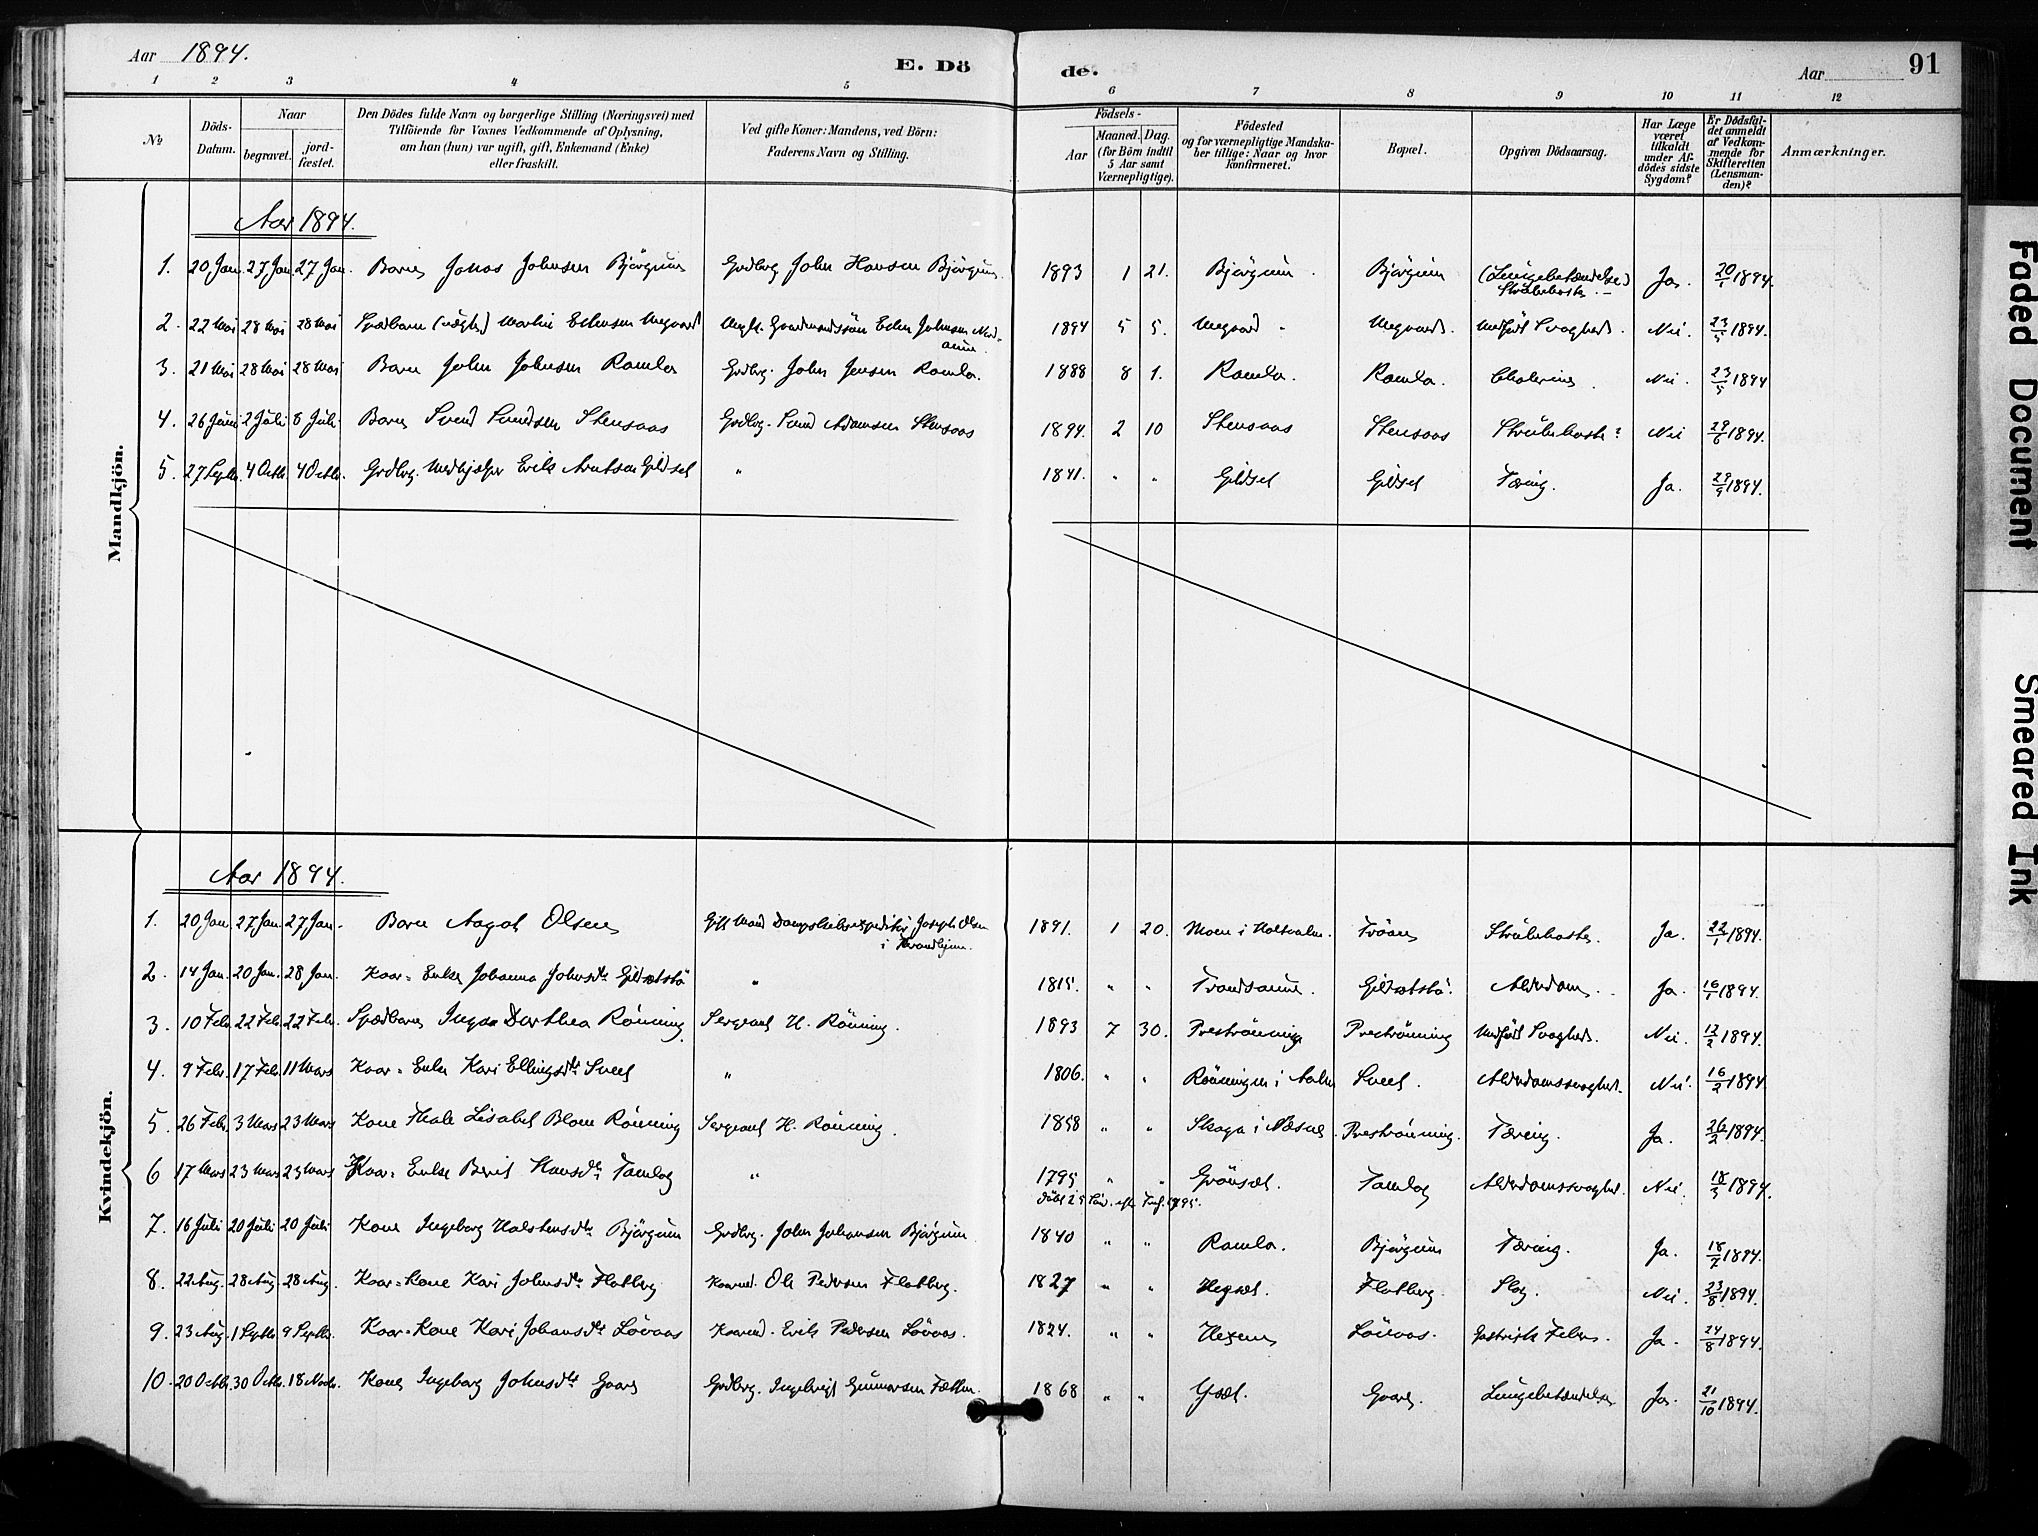 Aar 1894.
E. Dö de.
Aar
91
1 2 3 4 5 6 7 8 9 10 11 12
№
Döds-
Datum.
Naar
begravet.
jord-
fæstet.
Den Dödes fulde Navn og borgerlige Stilling (Næringsvei) med
Tilföiende for Voxnes Vedkommende af Oplysning,
om han (hun) var ugift, gift, Enkemand (Enke)
eller fraskilt.
Ved gifte Koner: Mandens, ved Börn:
Faderens Navn og Stilling.
Födsels-
Aar
Maaned. Dag.
(for Börn indtil
5 Aar samt
Værnepligtige).
Födested
og for værnepligtige Mandska-
ber tillige: Naar og hvor
konfirmeret.
Bopæl.
Opgiven Dödsaarsag.
Har Læge
været
tilkaldt
under Af-
dödes sidste
Sygdom?
Er Dödsfal-
det anmeldt
af Vedkom-
mende for
Skifteretten
(Lensman-
den)?
Anmærkninger.
Mandkjön.
Aar 1894.
1. 20 Jan. 27 Jan. 27 Jan. Barn Jonas Johnsen Bjørgum Grdbrg John Hansen Bjørgum. 1893 1 21. Bjørgum. Bjørgum (Lungebetændelse) Ja. 20/1 1894.
Strubehoste.
2. 22 Mai 28 Mai 28 Mai Spædbarn (uægte) Martin Estensen Johnsen 1894 5 5. Medfödt Svaghed. Nei. 23/5 1894.
3. 21 Mai 28 Mai 28 Mai Barn John Johnsen Ramlo Grdbrg. John Jensen Ramlo. 1888 8 1. Ramlo. Ramlo. Cholerine. Nei. 23/5 1894
4. 26 Juni 2 Juli 8 Juli Barn Svend Svendsen Stensaas Grdbrg. Svend Adamsen Stensaas 1894. 2 10 Stensaas Stensaas Strubehoste? Nei 29/6 1894.
5. 27 Septbr. 4 Octbr. 4 Octbr. Grdbrg. Medhjelper Erik Arntsen Gildset " 1841. " " Gildset Gildset Tæring. Ja. 29/9 1894.
Kvindekjön.
Aar 1894.
1. 20 Jan. 27 Jan. 27 Jan. Barn Aagot Olsen Gift Mand Dampskibsexpeditør Joseph Olsen 1891. 1 20. Moen i Holtaalen. Trøan Strubehoste. Ja. 22/1 1894.
i Throndhjem.
2. 14 Jan. 20 Jan. 28 Jan. Kaar-Enke Johanna Johnsdtr Gildsetbö " 1815. " " Trondsaune. Gildsetbö. Alderdom. Ja. 16/1 1894.
3. 10 Febr. 22 Febr. 22 Febr. Spædbarn Inga Dorthea Rönning. Sergeant H. Rönning. 1893 7 30. Preströnning Preströnning Medfödt Svaghed. Nei. 12/2 1894.
4. 9 Febr. 17 Febr. 11 Mars Kaar-Enke Kari Ellingsdtr Sveet " 1806. " " Rönningen i Aalen Sveet. Alderdomssvaghed. Nei. 16/2 1894
5. 26 Febr. 3 Mars 23 Mars Kone Thale Lisabet Blom Rönning Sergeant H. Rönning. 1858 " " Skaga i Næsnæs Preströnning. Tæring. Ja. 26/2 1894.
6 17 Mars 23 Mars 23 Mars Kaar-Enke Berit Hansdtr Tamlag " 1795 " " Grönset. Tamlag Alderdomssvaghed. Nei. 18/3 1894.
döbt 2 S. 1795.
7. 16 Juli 20 Juli 20 Juli Kone Ingeborg Halstensdtr Bjørgum Grdbrg. John Johansen Bjørgum 1840 " " Ramlo. Bjørgum Tæring. Ja. 18/7 1894.
8. 22 Aug. 28 Aug. 28 Aug. Kaar-Kone Kari Johnsdtr Flatberg Kaarmd. Ole Pedersen Flatberg. 1827 " " Hegset. Flatberg. Slag. Nei. 23/8 1894.
9. 23 Aug. 1 Septbr. 9 Septbr. Kaar-Kone Kari Johansdtr Lövaas Kaarmd. Erik Pedersen Lövaas. 1824. " " Hexem Lövaas. Gastrisk Feber. Ja. 24/8 1894.
10. 20 Octbr. 30 Octbr. 18 Novbr. Kone Ingeborg Johnsdtr Gaare Grdbrg. Ingebrigt Gunnarsen 1868 " " Gaare. Lungebetændelse Ja. 21/10 1894.
Faded Document
Smeared Ink